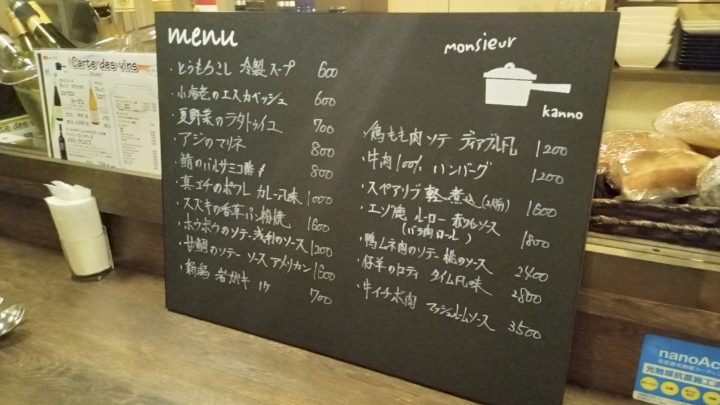 menu
・とうもろこし 冷製スープ 600
・小海老のエスカベッシュ 600
・夏野菜のラタトゥイユ 700
・アジのマリネ 800
・鯖のバルサミコ酢〆 800
・真ゴチのポワレ カレー風味 1000
・スズキの香草パン粉焼 1600
・ホウボウのソテー 浅利のソース 1200
・甘鯛のソテー ソースアメリカン 1600
・新潟 岩ガキ 1ケ 700
monsieur
kanno
・鶏もも肉ソテー ディアブル風 1200
・牛肉100% ハンバーグ 1200
・スペアリブ 軽い煮込 1600
・エゾ鹿 ルーロー 赤ワインソース 1800
(バラ肉ロール)
・鴨ムネ肉のソテー 桃のソース 2400
・仔羊のロティ タイム風味 2800
・牛イチボ肉 マッシュルームソース 3500
Carte des vins
nanoAc